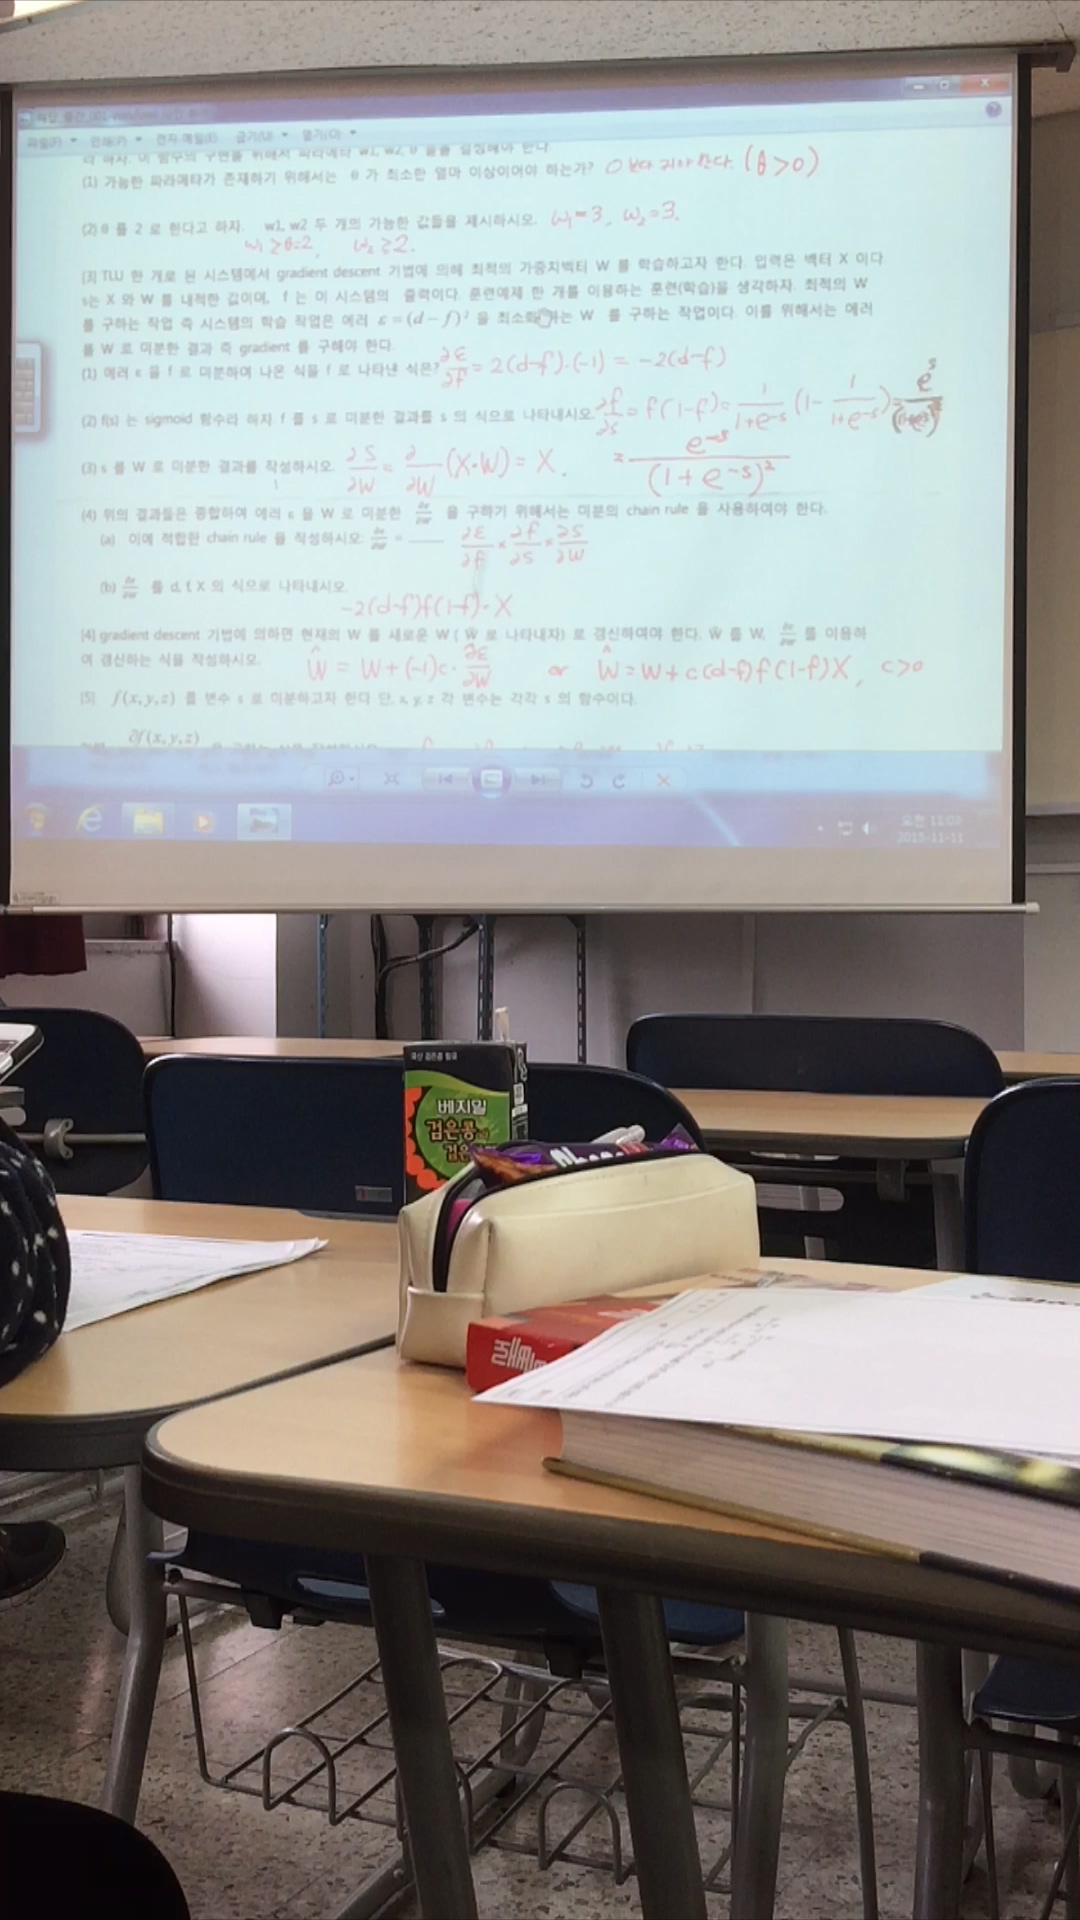 파일(F) 인쇄(P) 전자 메일(E) 굽기(U) 열기(O)
라 하자. 이 함수의 구현을 위해서 파라메타 w1, w2, θ 들을 결정해야 한다.
(1) 가능한 파라메타가 존재하기 위해서는 θ 가 최소한 얼마 이상이어야 하는가? 0 보다 커야 한다. (θ>0)
(2) θ 를 2 로 한다고 하자. w1, w2 두 개의 가능한 값들을 제시하시오. w₁=3, w₂=3.
w₁≥θ=2, w₂≥2.
[3] TLU 한 개로 된 시스템에서 gradient descent 기법에 의해 최적의 가중치벡터 W 를 학습하고자 한다. 입력은 벡터 X 이다
s는 X 와 W 를 내적한 값이며, f 는 이 시스템의 출력이다. 훈련예제 한 개를 이용하는 훈련(학습)을 생각하자. 최적의 W
를 구하는 작업 즉 시스템의 학습 작업은 에러 ε=(d−f)² 을 최소화하는 W 를 구하는 작업이다. 이를 위해서는 에러
를 W 로 미분한 결과 즉 gradient 를 구해야 한다.
(1) 에러 ε 을 f 로 미분하여 나온 식을 f 로 나타낸 식은? ∂ε/∂f = 2(d-f)·(-1) = -2(d-f)
(2) f(s) 는 sigmoid 함수라 하자 f 를 s 로 미분한 결과를 s 의 식으로 나타내시오 ∂f/∂s = f(1-f) = 1/(1+e⁻ˢ) (1- 1/(1+e⁻ˢ)) =
= e⁻ˢ/(1+e⁻ˢ)²
(3) s 를 W 로 미분한 결과를 작성하시오. ∂S/∂W = ∂/∂W (X·W) = X.
(4) 위의 결과들은 종합하여 에러 ε 을 W 로 미분한 ∂ε/∂W 을 구하기 위해서는 미분의 chain rule 을 사용하여야 한다.
(a) 이에 적합한 chain rule 을 작성하시오 ∂ε/∂W = ____ ∂ε/∂f × ∂f/∂S × ∂S/∂W
(b) ∂ε/∂W 를 d, f, X 의 식으로 나타내시오.
-2(d-f)f(1-f)·X
[4] gradient descent 기법에 의하면 현재의 W 를 새로운 W ( Ŵ 로 나타내자) 로 갱신하여야 한다. Ŵ 를 W, ∂ε/∂W 를 이용하
여 갱신하는 식을 작성하시오. Ŵ = W+(-1)c·∂ε/∂W or Ŵ=W+c(d-f)f(1-f)X, c>0
[5] f(x,y,z) 를 변수 s 로 미분하고자 한다 단, x, y, z 각 변수는 각각 s 의 함수이다.
∂f(x,y,z)
오전 11:03
2015-11-11
베지밀
검은콩
검은